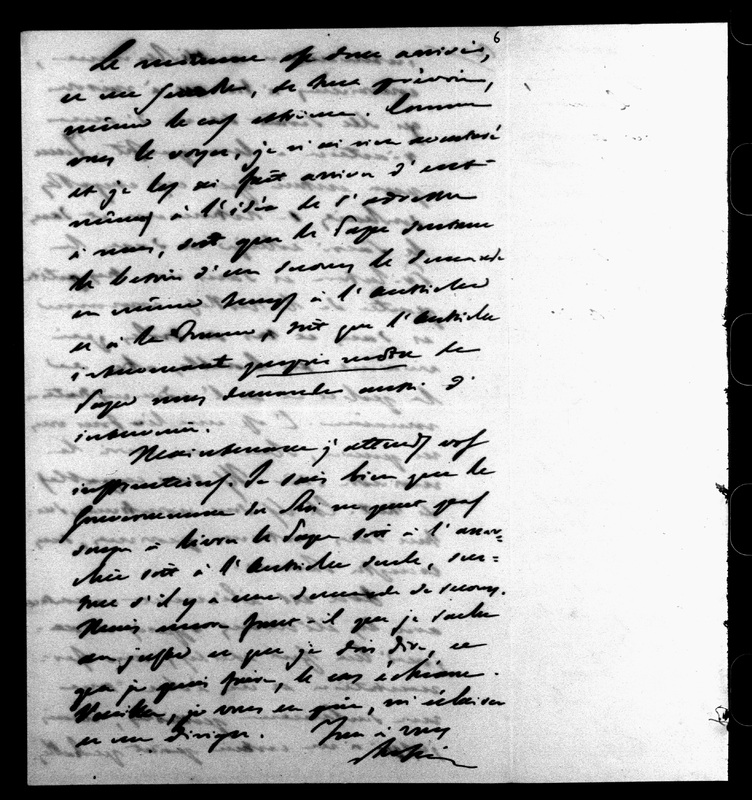 6
Le moment est donc arrivé,
ce me semble, de tout prévoir,
même le cas extrême. Comme
vous le voyez, je n'ai rien aventuré
et je les ai fait arriver d'eux-
mêmes à l'idée de s'adresser
à nous, soit que le Pape sentant
le besoin d'un secours le demande
en même temps à l'Autriche
et à la France, soit que l'Autriche
intervenant proprio motu le
Pape nous demande aussi d'
intervenir.
Maintenant j'attends vos
instructions. Je sais bien que le
Gouvernement du Roi ne peut pas
songer à livrer le Pape soit à l'anar-
chie soit à l'Autriche seule, sur-
tout s'il y a une demande de secours.
Mais encore faut-il que je sache
au juste ce que je dois dire, ce
que je puis faire, le cas échéant.
Veuillez, je vous en prie, m'éclairer
et me diriger. Tout à vous